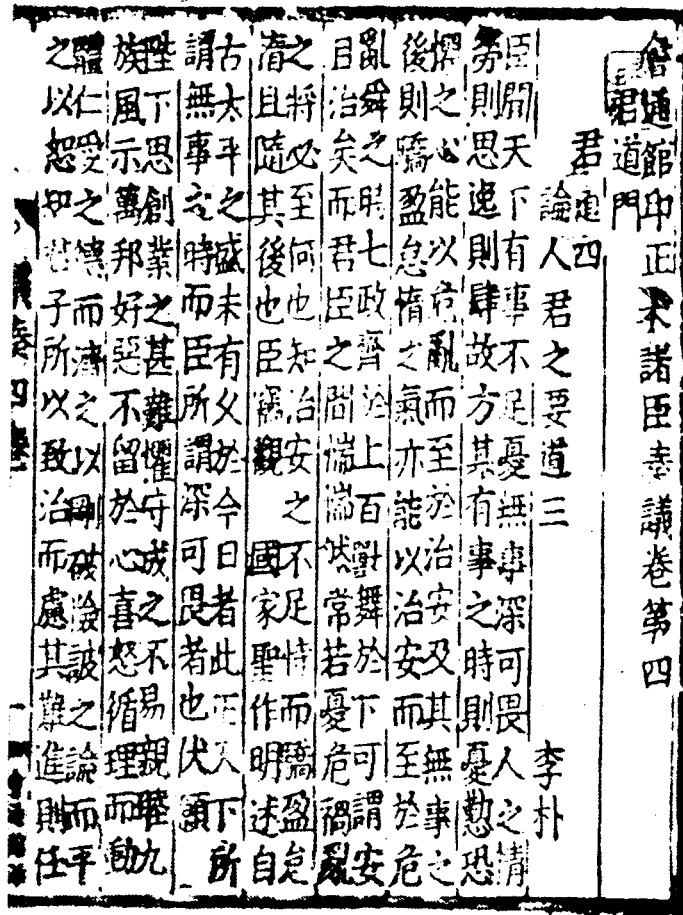 會通館印正宋諸臣奏議卷第四
君道門
君道四
論人君之要道三 李朴
臣聞天下有事不足憂無事深可畏人之情
勞則思逸則肆故方其有事之時則憂懃恐
慴之心能以危亂而至於治安及其無事之
後則驕盈怠惰之氣亦能以治安而至於危
亂舜之時七政齊於上百獸舞於下可謂安
且治矣而君臣之間惴惴然常若憂危禍亂
之將必至何也知治安之不足恃而驕盈怠
惰且隨其後也臣竊觀 國家聖作明述自
古太平之盛未有久於今日者此正天下所
謂無事之時而臣所謂深可畏者也伏願
陛下思創業之甚難懼守成之不易親睦九
族風示萬邦好惡不留於心喜怒循理而動
體仁愛之德而濟之以剛破詖之論而平
之以恕知君子所以致治而慮其難進則任
議奏四卷